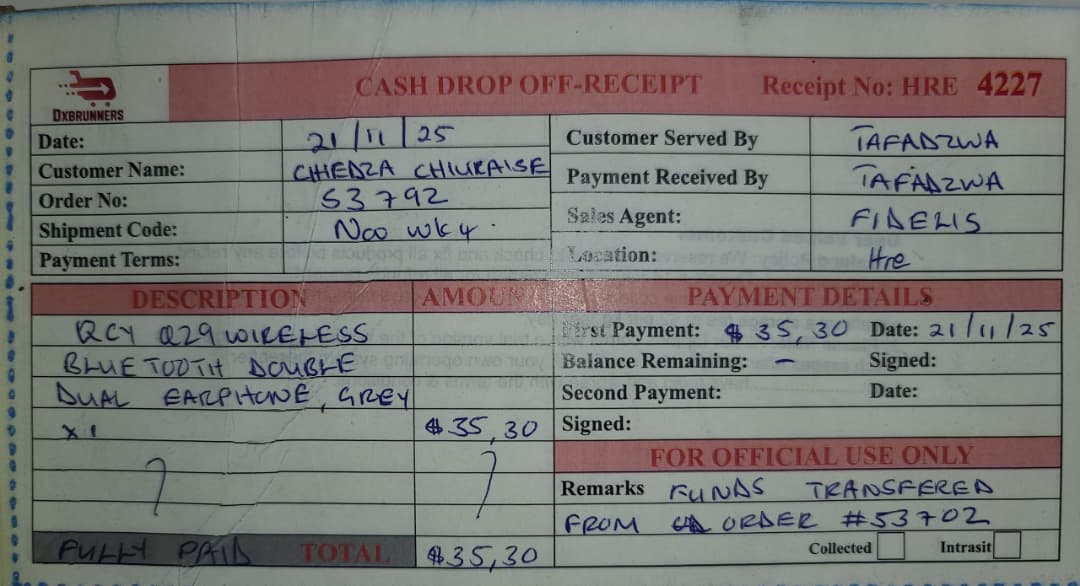 DXBRUNNERS
CASH DROP OFF-RECEIPT
Receipt No: HRE 4227
Date: 21/11/25
Customer Name: CHEDZA CHIURAISE
Order No: 53792
Shipment Code: Nov wk 4
Payment Terms:
Customer Served By TAFADZWA
Payment Received By TAFADZWA
Sales Agent: FIDELIS
Location: Hre
DESCRIPTION AMOUNT
QCY Q29 WIRELESS
BLUETOOTH DOUBLE
DUAL EARPHONE, GREY
x1 $35,30
FULLY PAID TOTAL $35,30
PAYMENT DETAILS
First Payment: $35,30 Date: 21/11/25
Balance Remaining: - Signed:
Second Payment: Date:
Signed:
FOR OFFICIAL USE ONLY
Remarks FUNDS TRANSFERED
FROM ORDER #53702
Collected Intrasit